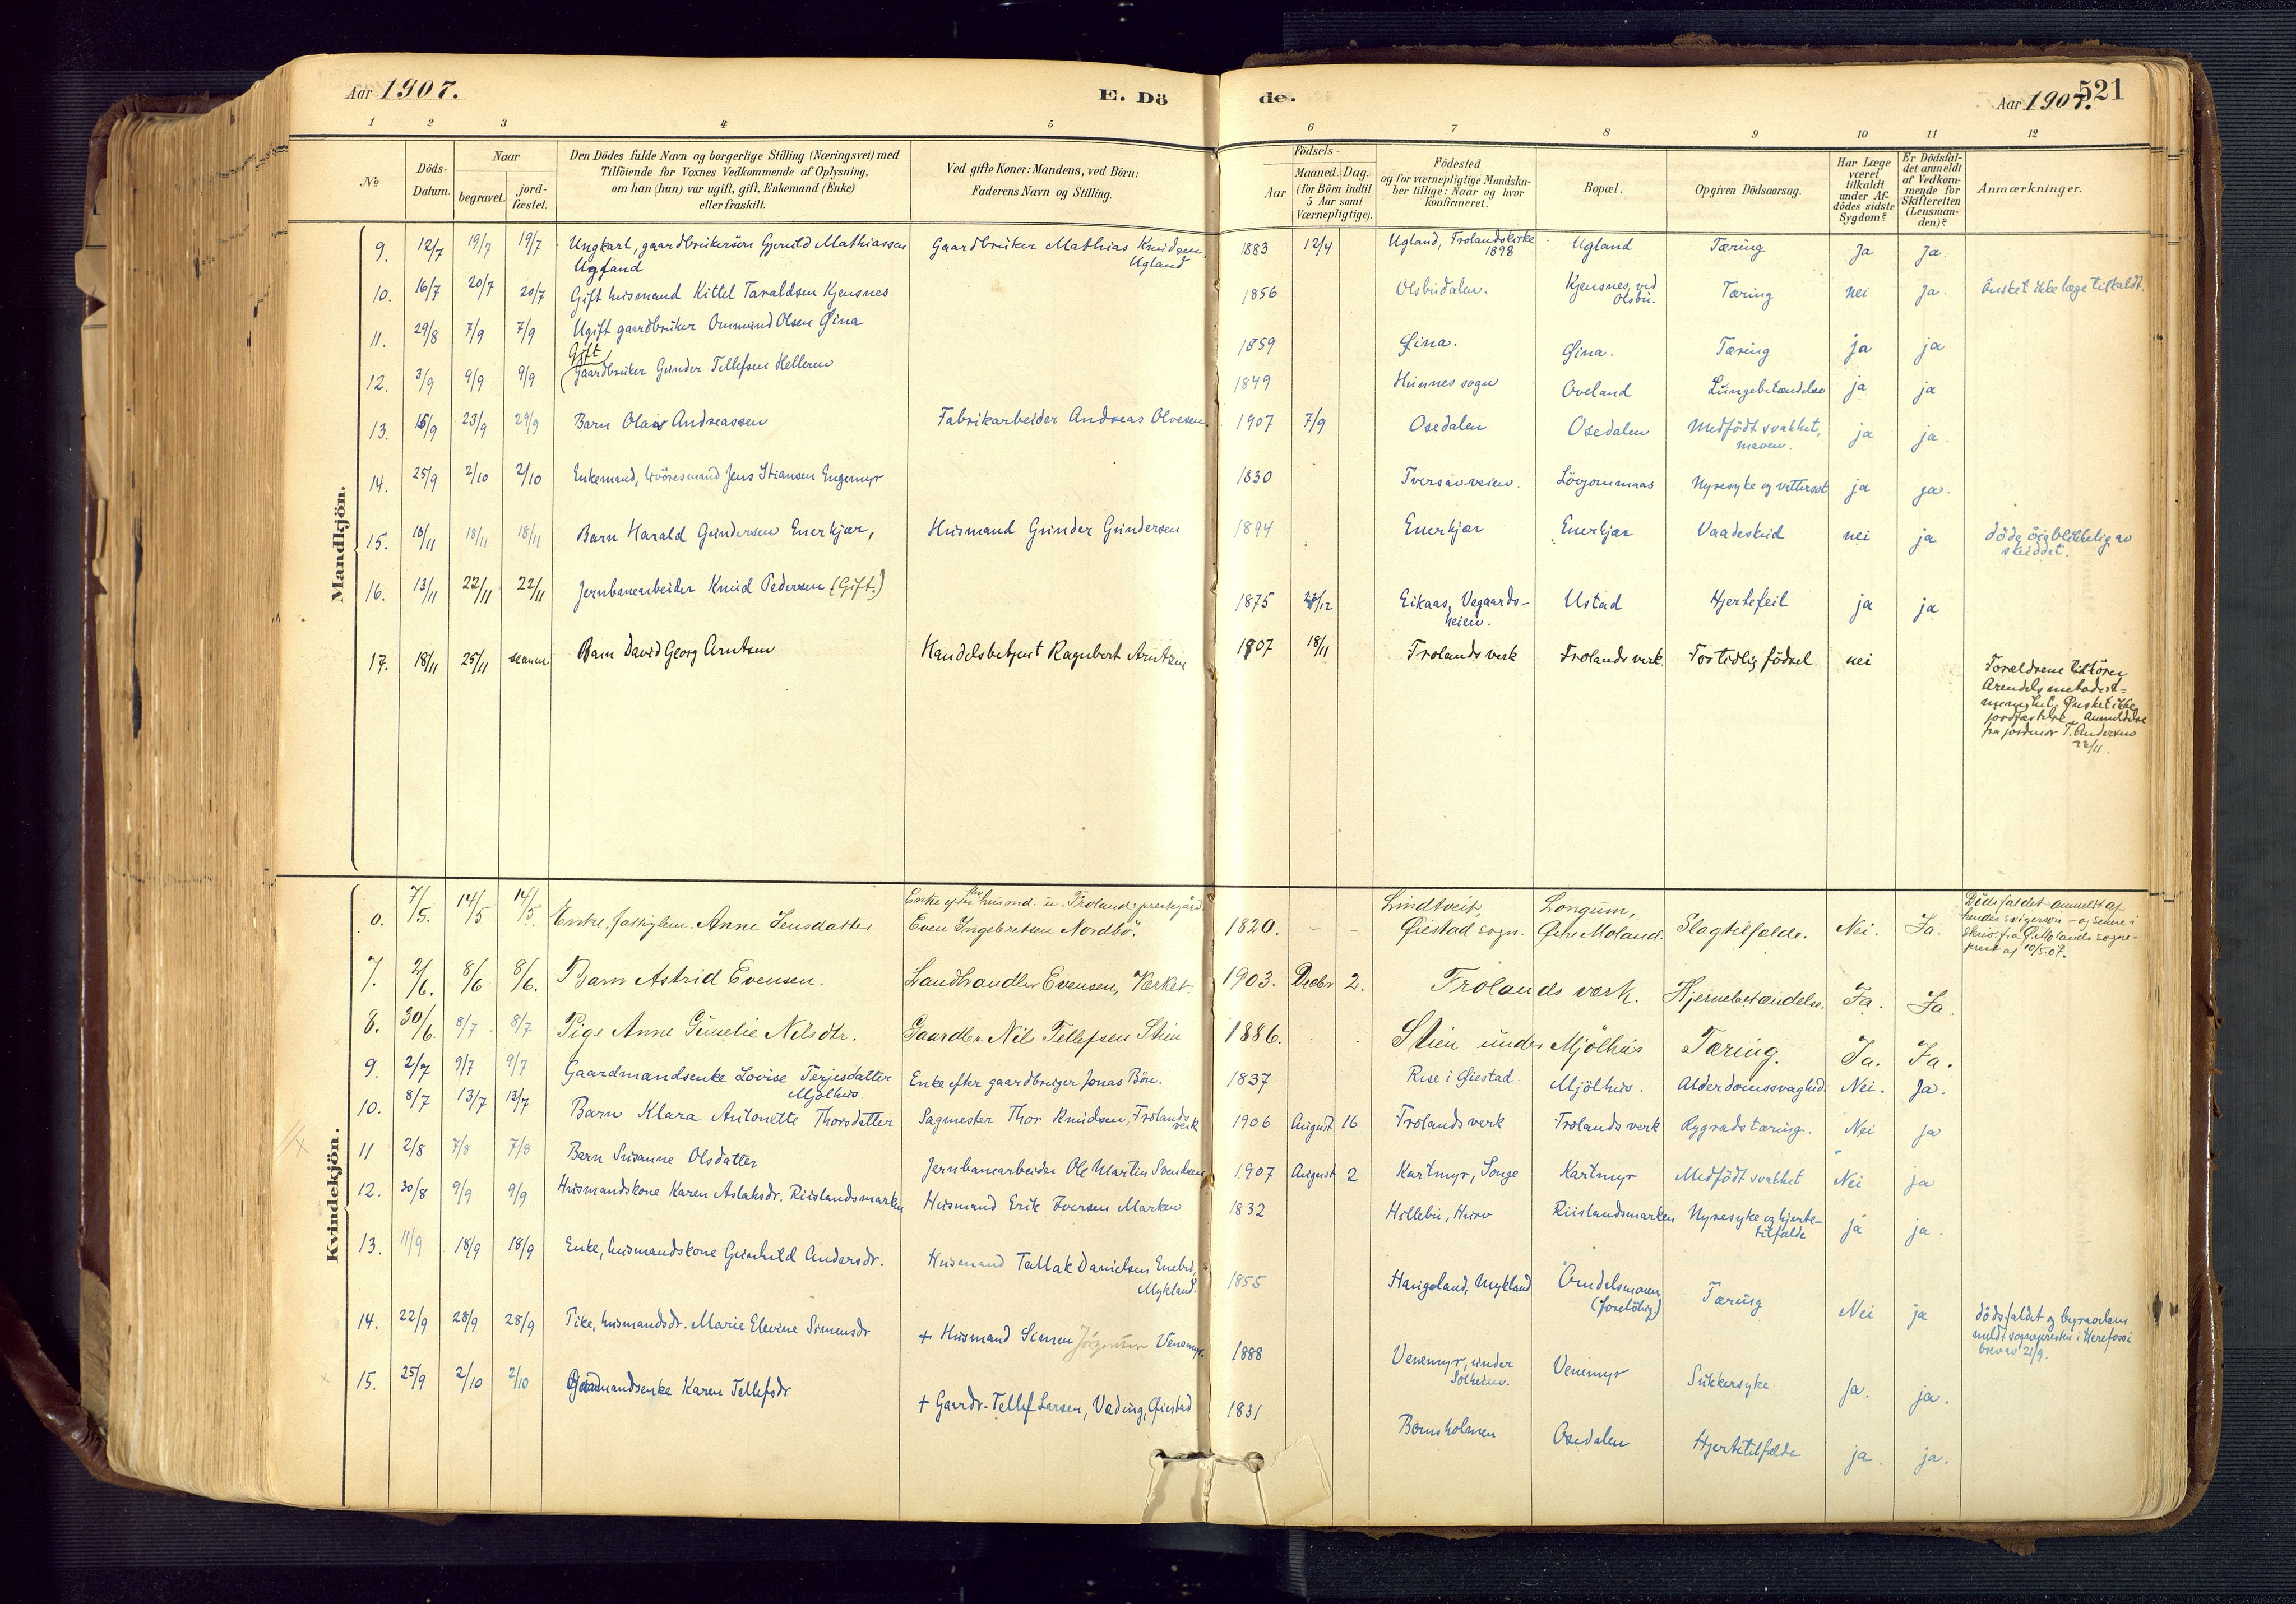 Aar 1907.
E. Dö
de.
Aar 1907.
521
1 2 3 4 5 6 7 8 9 10 11 12
No
Döds-Datum.
Naar
begravet.
jord-fæstet.
Den Dödes fulde Navn og borgerlige Stilling (Næringsvei) med
Tilföiende for Voxnes Vedkommende af Oplysning,
om han (hun) var ugift, gift, Enkemand (Enke)
eller fraskilt.
Ved gifte Koner: Mandens, ved Börn:
Faderens Navn og Stilling.
Födsels-
Aar
Maaned. Dag.
(for Börn indtil
5 Aar samt
Værnepligtige).
Födested
og for værnepligtige Mandska-
ber tillige: Naar og hvor
konfirmeret.
Bopæl.
Opgiven Dödsaarsag.
Har Læge
været
tilkaldt
under Af-
dödes sidste
Sygdom?
Er Dödsfal-
det anmeldt
af Vedkom-
mende for
Skifteretten
(Lensman-
den)?
Anmærkninger.
Mandkjön.
9. 12/7 19/7 19/7 Ungkarl, gaardbrukersön Gjeruld Mathiassen Ugland Gaardbruker Mathias Knudsen Ugland 1883 12/4 Ugland, Frolands kirke 1898 Ugland Tæring Ja Ja.
10. 16/7 20/7 20/7 Gift husmand Kittel Taraldsen Kjensnes 1856 Olsbudalen. Kjensnes ved Olsbu. Tæring nei Ja. Önsket ikke læge tilkaldt.
11. 29/8 7/9 7/9 Ugift gaardbruker Ommund Olsen Øina 1859 Øina. Øina. Tæring ja ja
12. 3/9 9/9 9/9 Gift Gaardbruker Gunder Tellefsen Helleren 1849 Hinnes sogn Oveland Lungebetændelse ja ja
13. 15/9 23/9 29/9 Barn Olav Andreassen Fabrikarbeider Andreas Olvesen. 1907 7/9 Osedalen Osedalen Medfödt svakhet, maven. ja ja.
14. 25/9 2/10 2/10 Enkemand, Jens Stiansen Engemyr 1830 Tversauveien. Lövjommaas Nyresyke og vattersot ja ja.
15. 10/11 18/11 18/11 Barn Harald Gundersen Enerkjær, Husmand Gunder Gundersen 1894 Enerkjær Enerkjær Vaadeskud nei ja döde öieblikkelig av skuddet.
16. 13/11 22/11 22/11 Jernbanearbeider Knud Pedersen (Gift.) 1875 /12 Eikaas, Vegaards-heien. Ustad Hjertefeil ja ja
17. 18/11 25/11 Barn David Georg Arntsen Handelsbetjent Ragnbert Arntzen 1907 18/11 Frolands verk Frolands verk For tidlig födsel nei Foreldrene tilhörer Arendals metodist-menighet. Ønsket ikke jordfæstelse. Anmeldelse fra jordmor T. Andersen 22/11.
Kvindekjön.
6. 7/5. 14/5 14/5. Enke, fattiglem. Anne Jensdatter Enke efter husmd. u. Frolands prestegård. Even Ingebretsen Nordbö. 1820. - - Lindtveit, Øiestad sogn. Longum, Østre Moland. Slagtilfælde. Nei. Ja. Dödsfaldet anmeldt af hendes svigersön - og senere i skriv. fra Ø. Molands sogne-prest af 10/5.07.
7. 2/6. 8/6 8/6. Barn Astrid Evensen. Landhandler Evensen, Værket. 1903. Decbr 2. Frolands værk. Hjernebetændelse. Ja. Ja.
8. 30/6. 8/7 8/7 Pige Anne Gunelie Nelsdtr. Gaardbr. Nils Tellefsen Stien 1886. Stien under Mjölhus Tæring. Ja. Ja.
9. 2/7 9/7 9/7 Gaardmandsenke Lovise Terjesdatter Mjölhus. Enke efter gaardbruger Jonas Böe. 1837 Rise i Øiestad. Mjölhus. Alderdomssvaghed. Nei. Ja.
10. 8/7 13/7 13/7 Barn Klara Antonette Thorsdatter Sagmester Thor Knudsen, Frolands verk 1906 August 16 Frolands verk Frolands verk Rygradstæring. Nei ja
11 2/8 7/8 7/8 Barn Susanne Olsdatter Jernbanearbeider Ole Martin Svendsen 1907 August 2 Kartmyr, Songe Kartmyr Medfödt svakhet Nei ja
12. 30/8 9/9 9/9 Husmandskone Karen Aslaksdr. Riislandsmarken Husmand Erik Iversen Marken 1832 Hillebu, Riislandsmarken Nyresyke og hjerte-tilfælde ja ja.
13. 11/9 18/9 18/9 Enke, husmandskone Gunhild Andersdr. Husmand Tallak Danielsen Enebo, Mykland. 1855 Haugeland, Mykland (foreløbig) Tæring Nei ja dödsfaldet og begravelsen meldt sognepresten i Herefoss i brev av 21/9.
14. 22/9 28/9 28/9 Pike, husmandsdr. Marie Elevine Simensdr + Husmand Simen Jörgensen Venemyr. 1888 Venemyr, under Solheim. Venemyr Sukkersyke Ja. ja.
15. 25/9 2/10 2/10 Gaardmandsenke Karen Tellefsdr + Gaardr. Tellef Larsen, Væding, Øiestad 1831 Bomsholmen Osedalen Hjertetilfælde ja. ja.